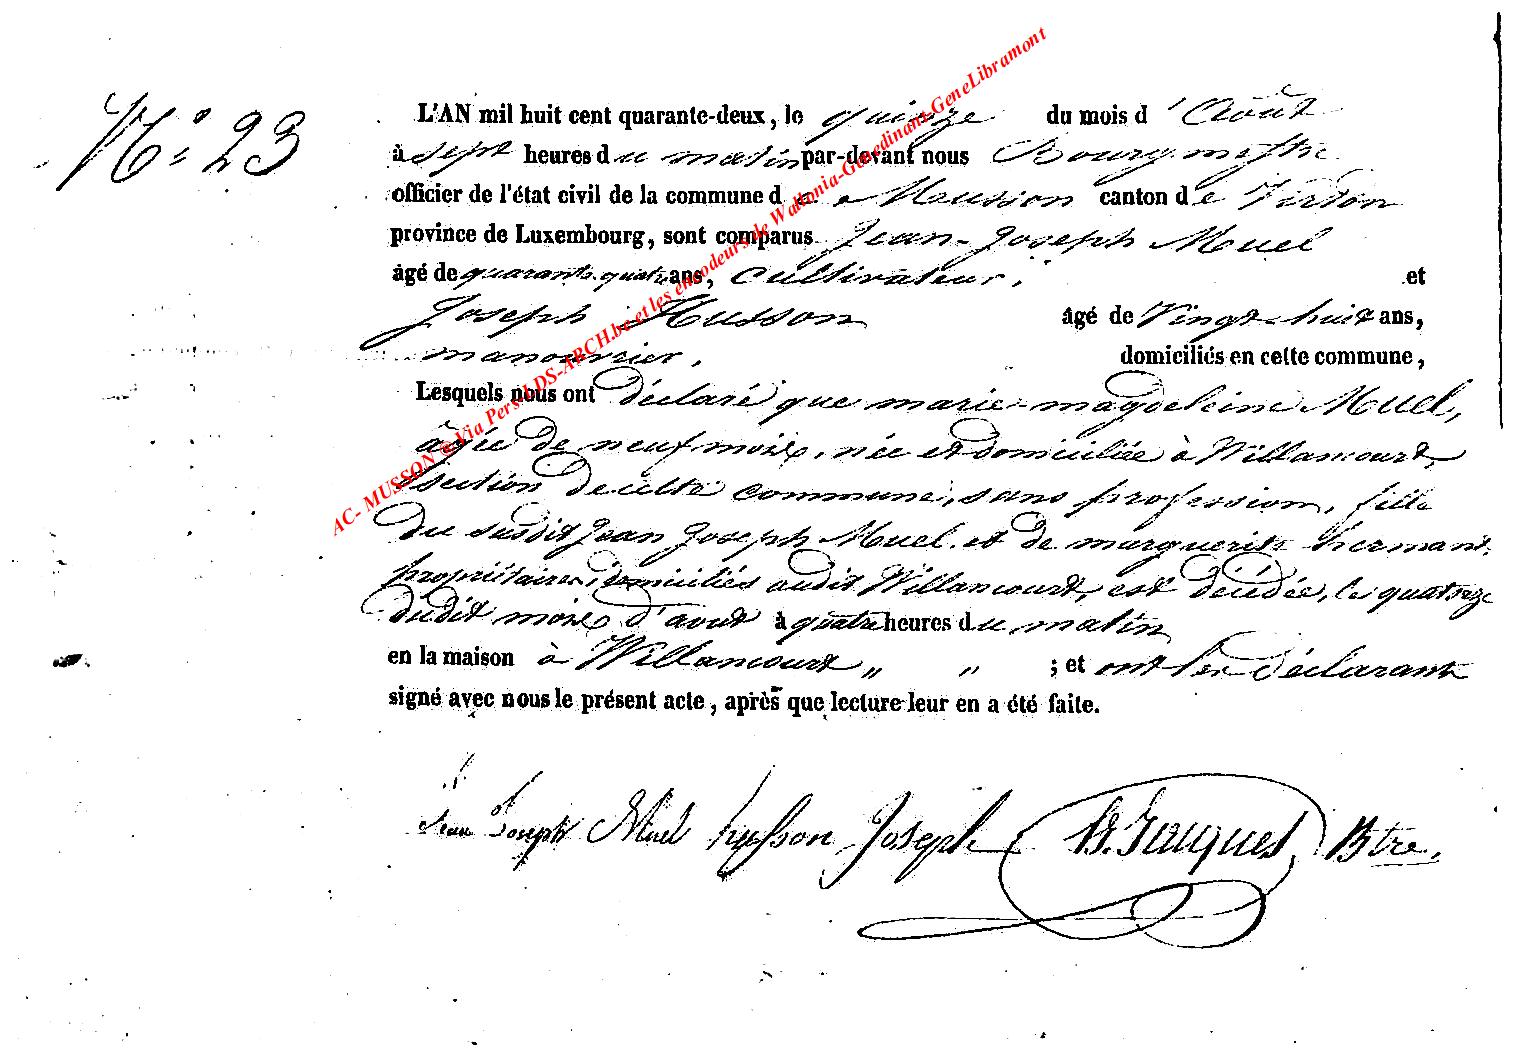 N.° 23
L'AN mil huit cent quarante-deux, le quinze du mois d'Août
à sept heures du matin par-devant nous Bourgmestre
officier de l'état civil de la commune de Musson canton de Virton
province de Luxembourg, sont comparus Jean-Joseph Muel
âgé de quarante-quatre ans, cultivateur, et
Joseph Husson âgé de Vingt-huit ans,
manouvrier, domiciliés en cette commune,
Lesquels nous ont déclaré que marie-magdeleine Muel,
âgée de neuf mois, née et domiciliée à Willancourt,
section de cette commune, sans profession, fille
du susdit Jean Joseph Muel et de marguerite hermant,
propriétaires, domiciliés audit Willancourt, est décédée, le quatorze
dudit mois d'aout à quatre heures du matin
en la maison à Willancourt " " ; et ont les déclarants
signé avec nous le présent acte, après que lecture leur en a été faite.
Jean Joseph Muel husson Joseph Btre.
AC- MUSSON © Via Pers-LDS-ARCH.be et les encodeurs de Wallonia-Genedinant-GeneLibramont